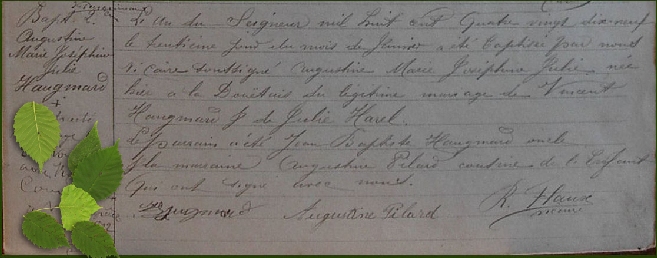 Bapt. 2.
Augustine
Marie Joséphine
Julie
Haugmard
L'an du Seigneur mil huit cent quatre vingt dix neuf
le trentième jour du mois de Janvier a été baptisée par nous
vicaire soussigné Augustine Marie Joséphine Julie née
hier à la du légitime mariage de Vincent
Haugmard & de Julie Harel.
Le parrain a été Jean Baptiste Haugmard oncle
& la marraine Augustine Pilard cousine de l'enfant
qui ont signé avec nous.
Haugmard Augustine Pilard R.
vicaire